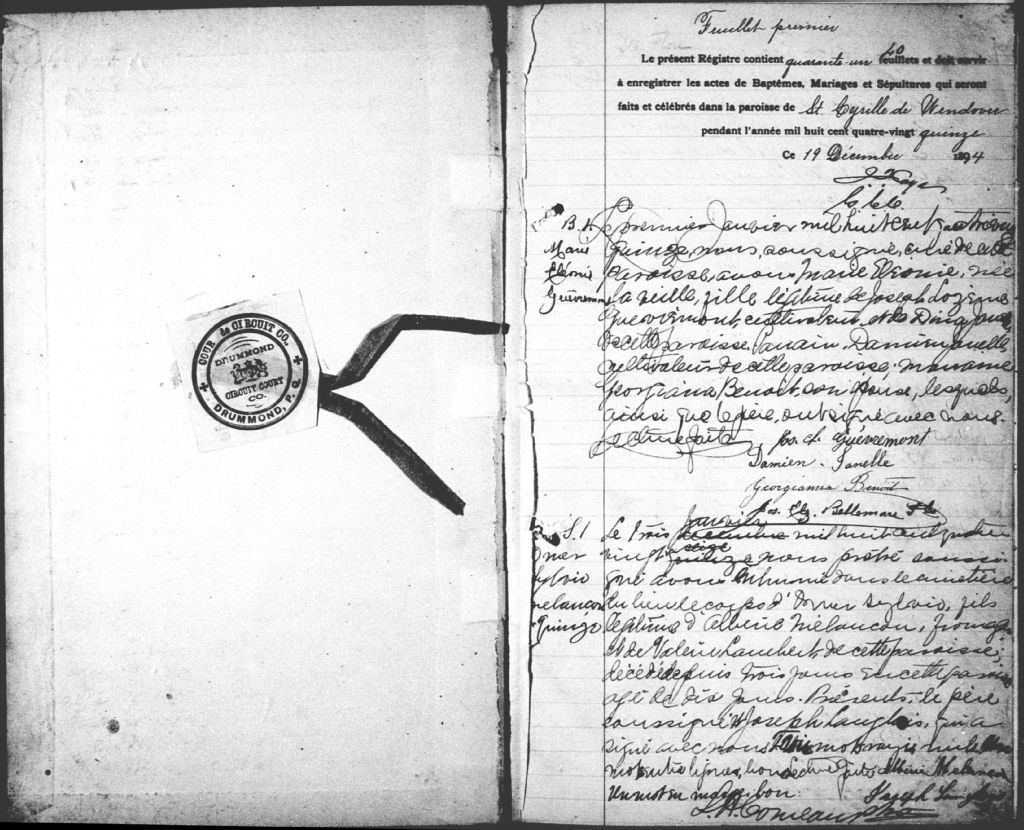 COUR de CIRCUIT CO.,
DRUMMOND
CIRCUIT COURT
CO.
DRUMMOND, P. Q.
Feuillet premier
40
Le présent Régistre contient quarante-un feuillets et doit servir
à enregistrer les actes de Baptêmes, Mariages et Sépultures qui seront
faits et célébrés dans la paroisse de St. Cyrille de Wendover
pendant l'année mil huit cent quatre-vingt quinze
Ce 19 Décembre 1894
B. 1.
Marie
Eléonie
Guévremont
Le premier Janvier mil huit cent quatrevingt
quinze, nous, soussigné, curé de cette
paroisse, avons Marie Eléonie, née
la veille, fille légitime de Joseph
Guévremont, cultivateur, et de
de cette paroisse. Parrain, Damien Janelle
cultivateur de cette paroisse. marraine
Georgiana Benoit, son épouse, lesquels,
ainsi que le père, ont signé avec nous.
Lecture faite
Jos. Guévremont
Damien Janelle
Georgianna Benoit
Jos. Elz. Bellemare Ptre
S. 1
Omer
Sylvio
Melancon
Quinze
Janvier
Le trois décembre mil huit cent quatre
seize
vingt quinze nous prêtre soussi-
gné avons inhumé dans le cimetière
du lieu le corps d'Omer Sylvio, fils
légitime d'Alberie Melancon, fromager
et de Valérie Lambert, de cette paroisse,
décédé depuis trois jours en cette paroisse
agé de dix jours. Présents: le père
soussigné & Joseph Langlois, qui a
signé avec nous. Trois mots rayés nuls
mots entre lignes, bons. Lecture faite. Alberie Melancon
Un mot en marge bon. Joseph Langlois
Comeau ptre